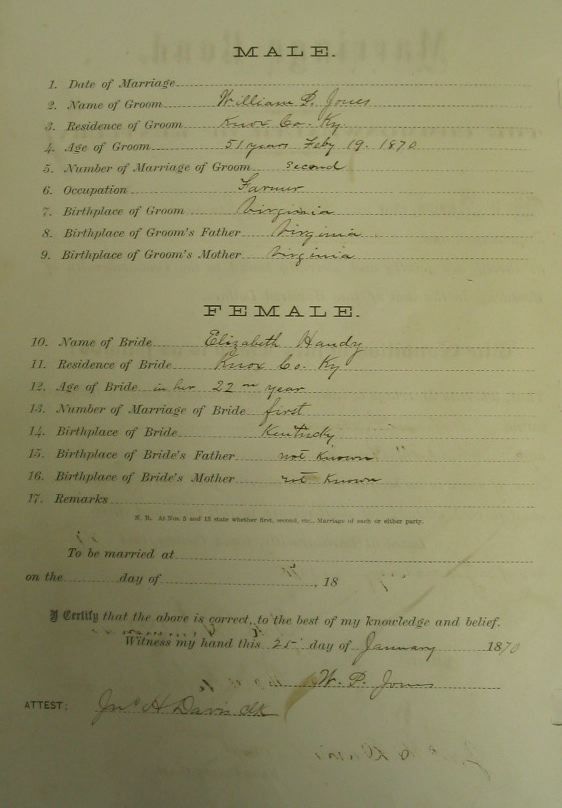 MALE.
1. Date of Marriage
2. Name of Groom William P. Jones
3. Residence of Groom Knox Co. Ky.
4. Age of Groom 51 years Feby 19. 1870
5. Number of Marriage of Groom second
6. Occupation Farmer
7. Birthplace of Groom Virginia
8. Birthplace of Groom's Father Virginia
9. Birthplace of Groom's Mother Virginia
FEMALE.
10. Name of Bride Elizabeth Handy
11. Residence of Bride Knox Co. Ky
12. Age of Bride in her 22nd year
13. Number of Marriage of Bride first
14. Birthplace of Bride Kentucky
15. Birthplace of Bride's Father not known
16. Birthplace of Bride's Mother not known
17. Remarks
N. B. At Nos. 5 and 13 state whether first, second, etc., Marriage of each or either party.
To be married at
on the day of , 18
I Certify that the above is correct, to the best of my knowledge and belief.
Witness my hand this 25 day of January 1870
W. P. Jones
ATTEST: Jno H Davis clk